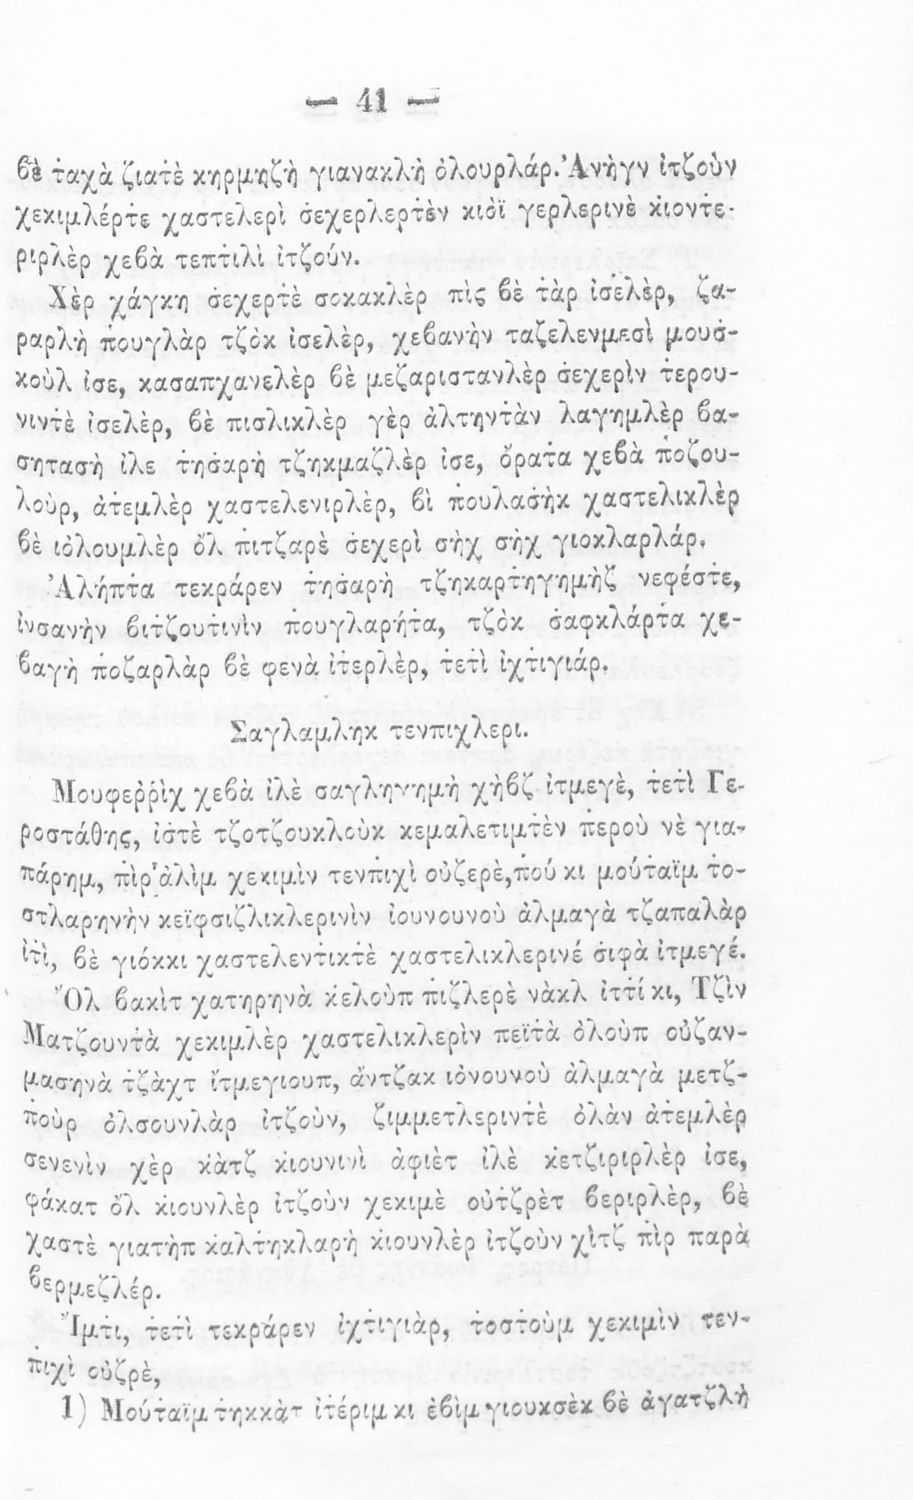 — 41 —
βὲ ṫαχὰ ζιατὲ κηρμηζὴ γιανακλὴ ὀλουρλάρ. Ἀνὴγν ἰτζοὺν
χεκιμλέρτε χαστελερὶ σ̇εχερλερτὲν κιὸϊ γερλερινὲ κ̇ιοντε-
ριρλὲρ χεβὰ τεπτιλὶ ἰτζούν.
Χὲρ χάγκη σ̇εχερτὲ σοκακλὲρ πὶς βὲ τὰρ ἰσὲλὲρ, ζα-
ραρλὴ π̇ουγλὰρ τζὸκ ἰσελὲρ, χεβανὴν ταζελενμεσὶ μουσ̇-
κοὺλ ἰσε, κασαπχανελὲρ βὲ μεζαριστανλὲρ σ̇εχερὶν τερου-
νιντὲ ἰσελὲρ, βὲ πισλικλὲρ γὲρ ἀλτηντὰν λαγημλὲρ βα-
σητασὴ ἰλε τησ̇αρὴ τζηκμαζλὲρ ἰσε, ὄρατα χεβὰ π̇οζου-
λοὺρ, ἀτεμλὲρ χαστελενιρλὲρ, βὶ π̇ουλασ̇ὴκ χαστελικλὲρ
βὲ ἰὀλουμλὲρ ὂλ π̇ιτζαρὲ σ̇εχερὶ σὴχ σὴχ γιοκλαρλάρ.
Ἀλήπτα τεκράρεν τησ̇αρὴ τζηκαρτηγημὴζ νεφέστε,
ἰνσανὴν βιτζουτινὶν π̇ουγλαρήτα, τζὸκ σ̇αφκλάρτα χε-
βαγὴ π̇οζαρλὰρ βὲ φενὰ ἰτερλὲρ, τετὶ ἰχτιγιάρ.
Σαγλαμλὴκ τενπιχλερι.
Μουφερρὶχ χεβὰ ἰλὲ σαγληγημὴ χὴβζ ἰτμεγὲ, τετὶ Γε-
ροστάθης, ἰστὲ τζοτζουκλοὺκ κεμαλετιμτὲν π̇εροὺ νὲ για-
πάρημ, π̇ὶρ ἀλὶμ χεκιμὶν τενπιχὶ οὐζερὲ, π̇ού κι μούταϊμ το-
στλαρηνὴν κεϊφσιζλικλερινὶν ἰουνουνοὺ ἀλμαγὰ τζαπαλὰρ
ἰτὶ, βὲ γιόκκι χαστελεντικτὲ χαστελικλερινέ σιφὰ ἰτμεγέ.
Ὂλ βακὶτ χατηρηνὰ κ̇ελοὺπ π̇ιζλερὲ νὰκλ ἰττί κι, Τζὶν
Ματζουντὰ χεκιμλὲρ χαστελικλερὶν πεϊτὰ ὀλοὺπ οὐζαν-
μασηνὰ τζὰχτ ἴτμεγιουπ, ἄντζακ ἰὀνουνοὺ ἀλμαγὰ μετζ-
π̇οὺρ ὀλσουνλὰρ ἰτζοὺν, ζιμμετλεριντὲ ὀλὰν ἀτεμλὲρ
σενενὶν χὲρ κὰτζ κ̇ιουνινὶ ἀφιὲτ ἰλὲ κ̇ετζιριρλὲρ ἰσε,
φάκατ ὂλ κ̇ιουνλὲρ ἰτζοὺν χεκιμὲ οὐτζρὲτ βεριρλὲρ, βὲ
χαστὲ γιατὴπ καλτηκλαρὴ κ̇ιουνλὲρ ἰτζοὺν χὶτζ π̇ὶρ παρὰ
βερμεζλέρ.
Ἴμτι, τετὶ τεκράρεν ἰχτιγιὰρ, τοστοὺμ χεκιμὶν τεν-
π̇ιχὶ οὐζρὲ,
1) Μούταϊμ τηκκὰτ ἰτέριμ κι ἐβὶμ γιουκσὲκ βὲ ἀγατζλὴ